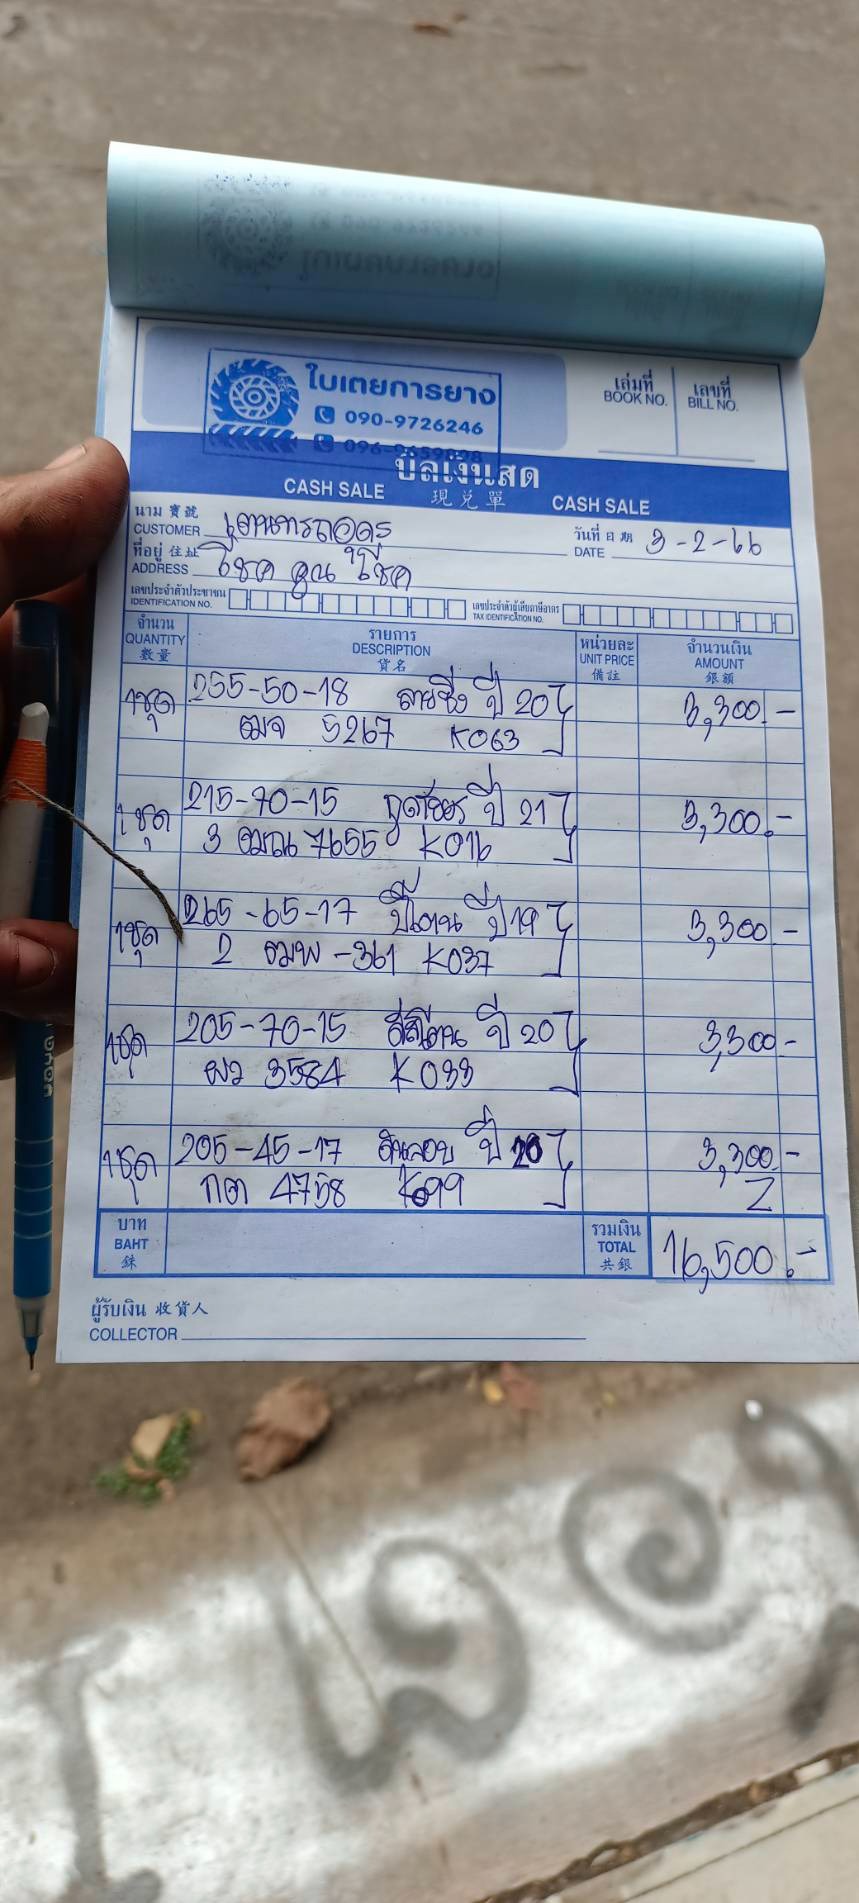 ใบเตยการยาง
090-9726246
096-9659898
เล่มที่
BOOK NO.
เลขที่
BILL NO.
บิลเงินสด
CASH SALE 現兌單 CASH SALE
นาม 寶號
CUSTOMER
วันที่ 日期
DATE 3-2-66
ที่อยู่ 住址
ADDRESS
เลขประจำตัวประชาชน
IDENTIFICATION NO.
เลขประจำตัวผู้เสียภาษีอากร
TAX IDENTIFICATION NO.
จำนวน
QUANTITY
數量
รายการ
DESCRIPTION
貨名
หน่วยละ
UNIT PRICE
備註
จำนวนเงิน
AMOUNT
銀額
1ชุด 255-50-18 ปี 20 3,300.-
5267 K063
1ชุด 215-70-15 ปี 21 3,300.-
3 ฒณ 7655 K016
1ชุด 265-65-17 ปี 19 3,300.-
2 ฒพ -361 K037
1ชุด 205-70-15 ปี 20 3,300.-
ฌว 3584 K033
1ชุด 205-45-17 ปี 20 3,300.-
กต 4758 K099
บาท
BAHT
銖
รวมเงิน
TOTAL
共銀
16,500.-
ผู้รับเงิน 收貨人
COLLECTOR